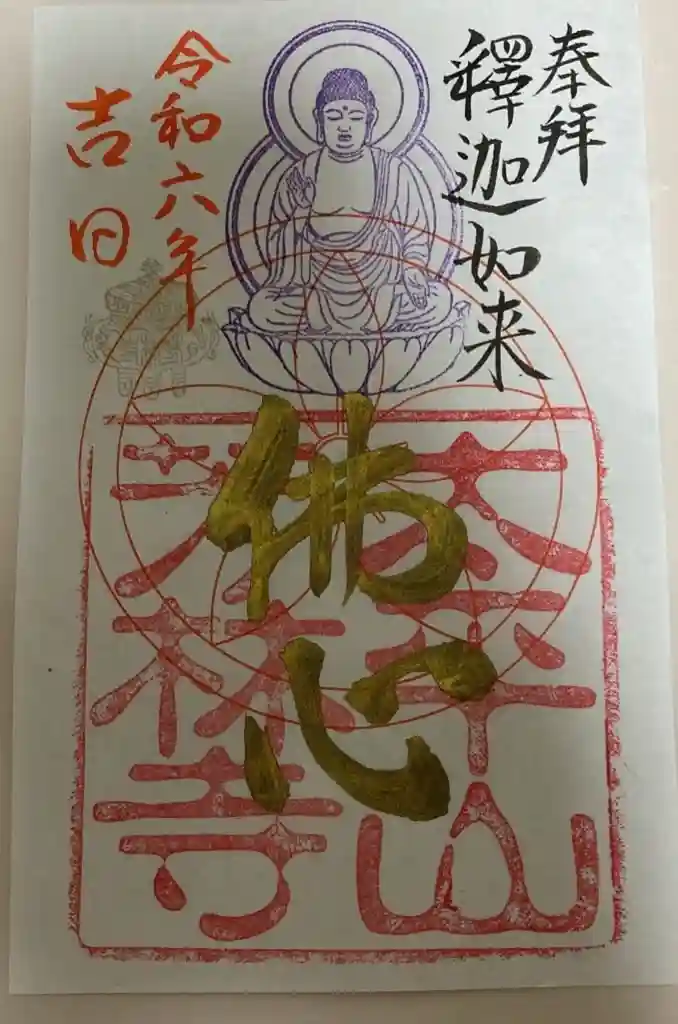 奉拝
釋迦如来
佛心
令和六年
吉日
平山
林寺